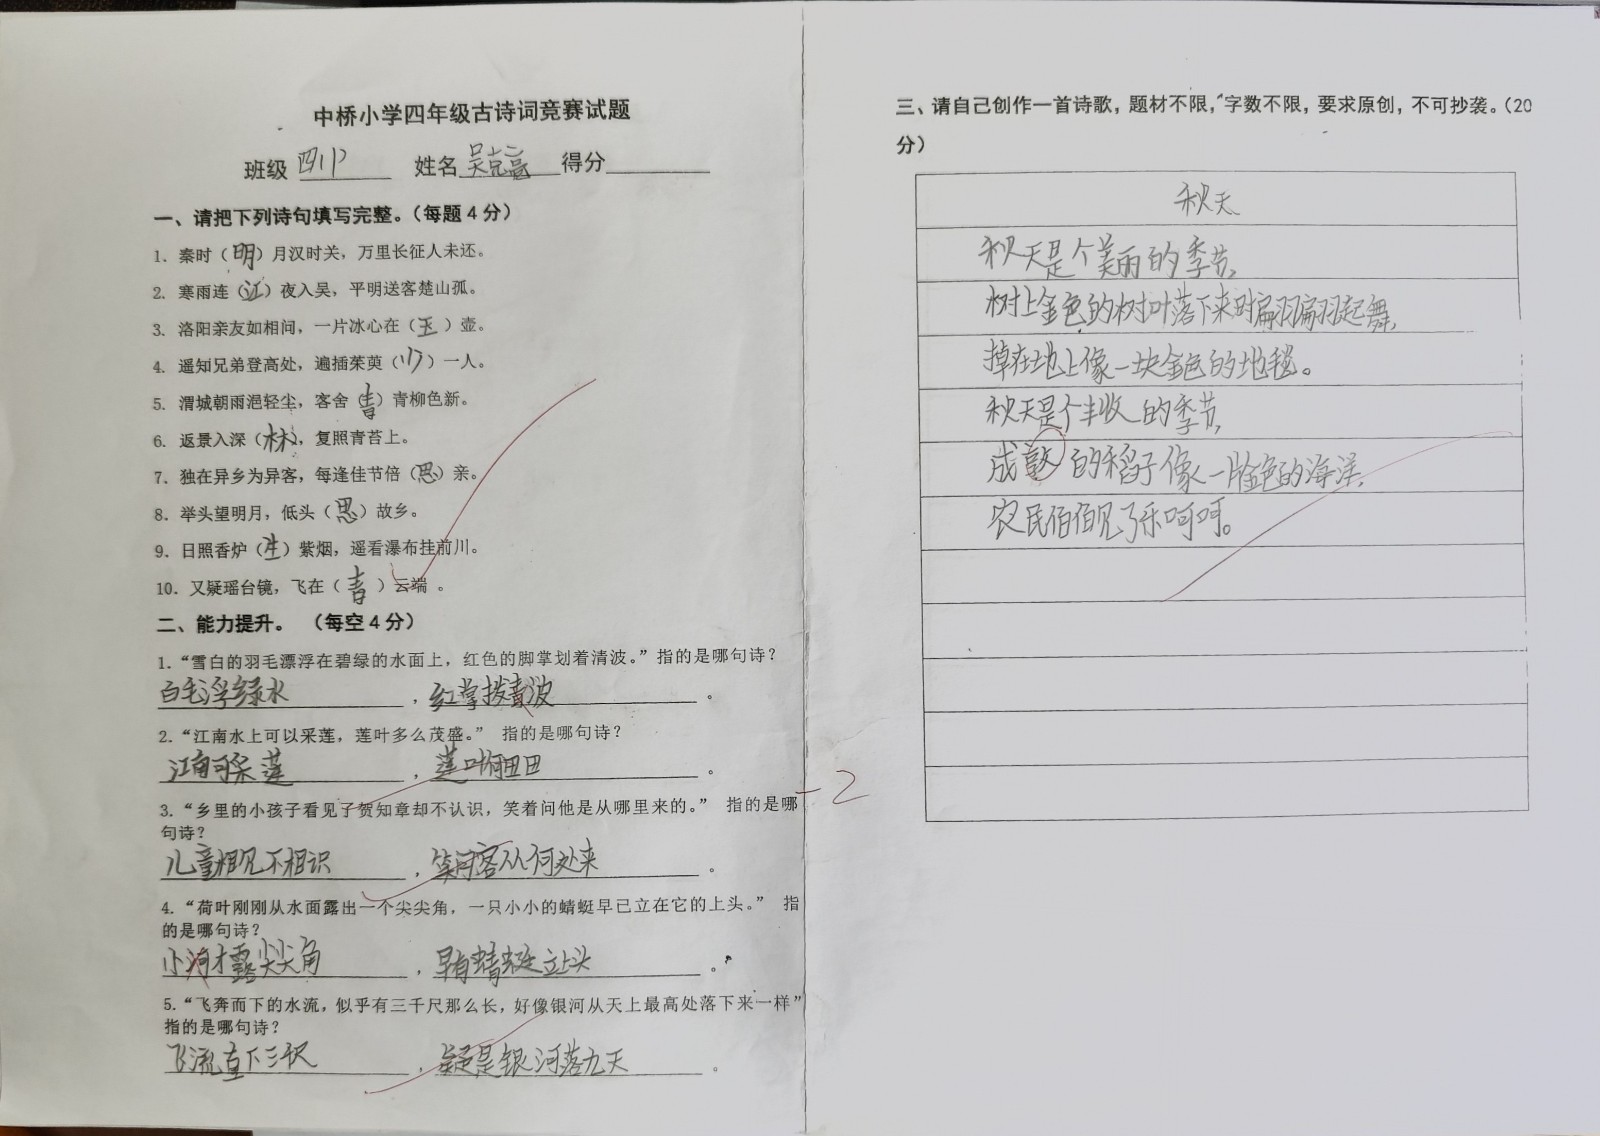 中桥小学四年级古诗词竞赛试题
班级 四 姓名 吴克亮 得分
一、请把下列诗句填写完整。（每题4分）
1. 秦时（明）月汉时关，万里长征人未还。
2. 寒雨连（江）夜入吴，平明送客楚山孤。
3. 洛阳亲友如相问，一片冰心在（玉）壶。
4. 遥知兄弟登高处，遍插茱萸（少）一人。
5. 渭城朝雨浥轻尘，客舍（青）青柳色新。
6. 返景入深（林），复照青苔上。
7. 独在异乡为异客，每逢佳节倍（思）亲。
8. 举头望明月，低头（思）故乡。
9. 日照香炉（生）紫烟，遥看瀑布挂前川。
10. 又疑瑶台镜，飞在（青）云端 。
二、能力提升。 （每空4分）
1.“雪白的羽毛漂浮在碧绿的水面上，红色的脚掌划着清波。”指的是哪句诗？
白毛浮绿水 ，红掌拨青波 。
2.“江南水上可以采莲，莲叶多么茂盛。” 指的是哪句诗？
江南可采莲 ，莲叶何田田 。
3.“乡里的小孩子看见了贺知章却不认识，笑着问他是从哪里来的。” 指的是哪
句诗？
儿童相见不相识 ，笑问客从何处来 。
4.“荷叶刚刚从水面露出一个尖尖角，一只小小的蜻蜓早已立在它的上头。” 指
的是哪句诗？
小河才露尖尖角 ，早有蜻蜓立上头 。
5.“飞奔而下的水流，似乎有三千尺那么长，好像银河从天上最高处落下来一样”
指的是哪句诗？
飞流直下三千尺 ，疑是银河落九天 。
-2
三、请自己创作一首诗歌，题材不限，字数不限，要求原创，不可抄袭。（20
分）
秋天
秋天是个美丽的季节，
树上金色的树叶落下来时扁羽扁羽起舞，
掉在地上像一块金色的地毯。
秋天是个丰收的季节，
成熟的稻子像一片金色的海洋，
农民伯伯见了乐呵呵。